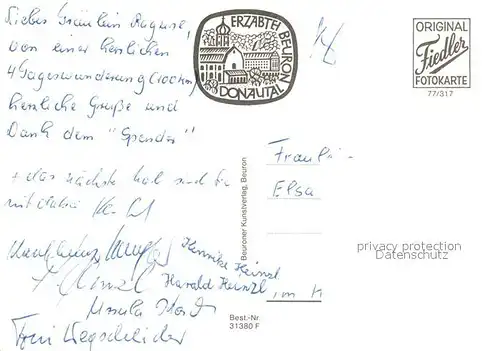 Liebes Fräulein
von einer herrlichen
4 Tageswanderung (100 km)
herzliche Grüße und
Dank dem "Spender"
+ das nächste Mal sind Sie
mit dabei
Henrike Heinzl
Harald Heinzl
Ursula
Wegscheider
ERZABTEI BEURON
DONAUTAL
ORIGINAL
Fiedler
FOTOKARTE
77/317
Beuroner Kunstverlag, Beuron
Best.-Nr.
31380 F
Fräulei-
Elsa
privacy protection
Datenschutz